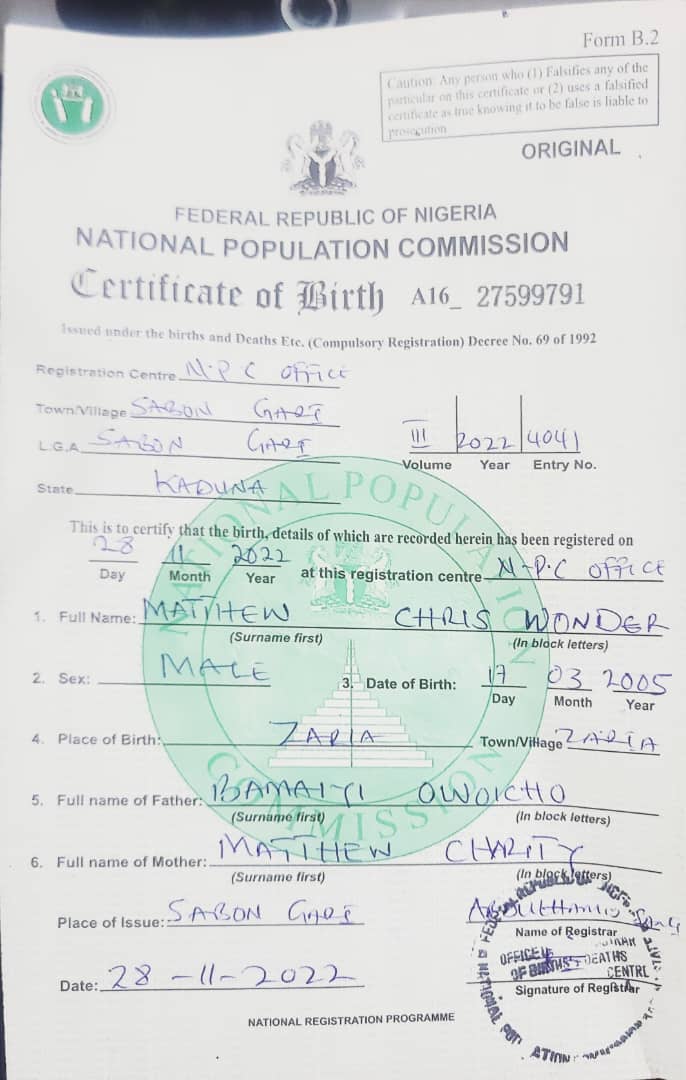 Form B.2
Caution: Any person who (1) Falsifies any of the
particular on this certificate or (2) uses a falsified
certificate as true knowing it to be false is liable to
prosecution
ORIGINAL
FEDERAL REPUBLIC OF NIGERIA
NATIONAL POPULATION COMMISSION
Certificate of Birth A16_ 27599791
Issued under the births and Deaths Etc. (Compulsory Registration) Decree No. 69 of 1992
Registration Centre N.P.C OFFICE
Town/Village SABON GARI
L.G.A. SABON GARI
III 2022 4041
Volume Year Entry No.
State KADUNA
NATIONAL POPULATION COMMISSION
This is to certify that the birth, details of which are recorded herein has been registered on
28 11 2022 at this registration centre N.P.C OFFICE
Day Month Year
1. Full Name: MATTHEW CHRIS WONDER
(Surname first) (In block letters)
2. Sex: MALE 3. Date of Birth: 17 03 2005
Day Month Year
4. Place of Birth: ZARIA Town/Village ZARIA
5. Full name of Father: BAMAIYI OWOICHO
(Surname first) (In block letters)
6. Full name of Mother: MATTHEW CHARITY
(Surname first) (In block letters)
Place of Issue: SABON GARI
Name of Registrar
OF BIRTHS DEATHS
CENTRL
Date: 28-11-2022
Signature of Registrar
NATIONAL REGISTRATION PROGRAMME